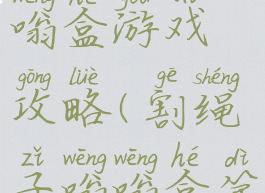 嗡盒游戏
gōng lüè gē shéng
攻略(割绳
zǐ wēng wēng hé dì
子嗡嗡盒第